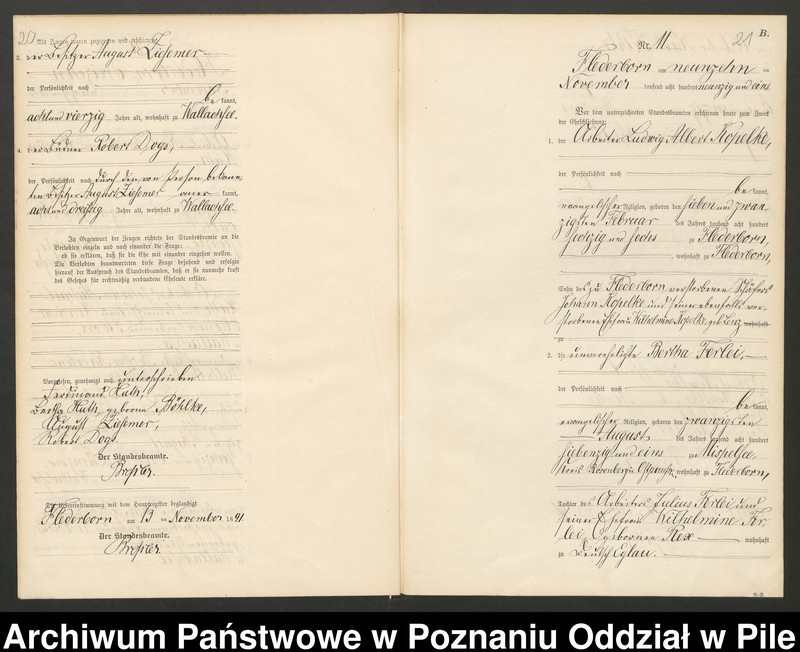 20
Als Zeugen waren zugezogen und erschienen:
3. der Besitzer August Ziesemer
der Persönlichkeit nach
be kannt,
acht und vierzig Jahre alt, wohnhaft zu Wallachsee.
4. der Büdner Robert Dogs,
der Persönlichkeit nach durch den von Person bekann-
ten Besitzer August Ziesemer aner kannt,
acht und dreißig Jahre alt, wohnhaft zu Wallachsee.
In Gegenwart der Zeugen richtete der Standesbeamte an die
Verlobten einzeln und nach einander die Frage:
ob sie erklären, daß sie die Ehe mit einander eingehen wollen.
Die Verlobten beantworteten diese Frage bejahend und erfolgte
hierauf der Ausspruch des Standesbeamten, daß er sie nunmehr kraft
des Gesetzes für rechtmäßig verbundene Eheleute erkläre.
Vorgelesen, genehmigt und unterschrieben
Ferdinand Huth,
Bertha Huth, geborne Böhlke,
August Ziesemer,
Robert Dogs.
Der Standesbeamte.
Die Uebereinstimmung mit dem Hauptregister beglaubigt
Flederborn am 13 ten November 1891.
Der Standesbeamte.
B.
21
Nr. 11
Flederborn am neunzehn ten
November tausend acht hundert neunzig und eins
Vor dem unterzeichneten Standesbeamten erschienen heute zum Zweck
der Eheschließung:
1. der Arbeiter Ludwig Albert Kopelke,
der Persönlichkeit nach
be kannt,
evangelischer Religion, geboren den sieben und zwan-
zigsten Februar des Jahres tausend acht hundert
sechzig und sechs zu Flederborn,
, wohnhaft zu Flederborn,
Sohn des zu Flederborn verstorbenen Schäfers
Johann Kopelke und seiner ebenfalls ver-
storbenen Ehefrau Wilhelmine Kopelke, geb. Lenz wohnhaft
zu
2. die unverehelichte Bertha Ferlei,
der Persönlichkeit nach
be kannt,
evangelischer Religion, geboren den zwanzigsten
August des Jahres tausend acht hundert
siebenzig und eins zu Mispelsee,
Kreis Ostpreuß., wohnhaft zu Flederborn,
Tochter des Arbeiters Julius Ferlei und
seiner Ehefrau Wilhelmine Fer-
lei, geborenen Rex wohnhaft
zu Deutsch Eylau.
Archiwum Państwowe w Poznaniu Oddział w Pile